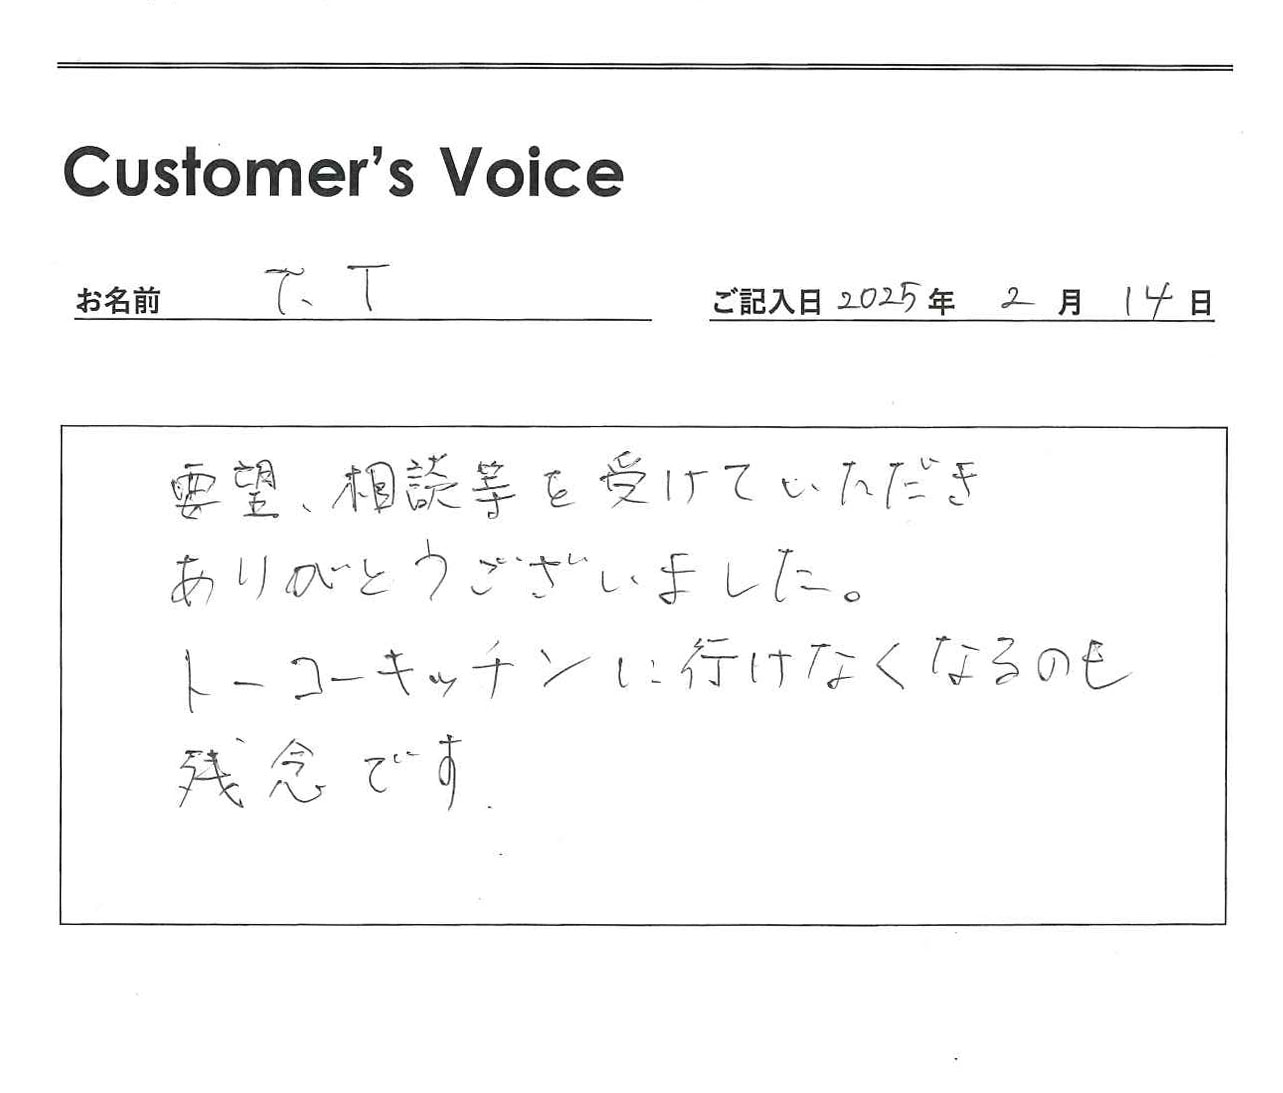 Customer's Voice
お名前 T、T
ご記入日 2025年 2月 14日
要望、相談等を受けていただき
ありがとうございました。
トーコーキッチンに行けなくなるのも
残念です.